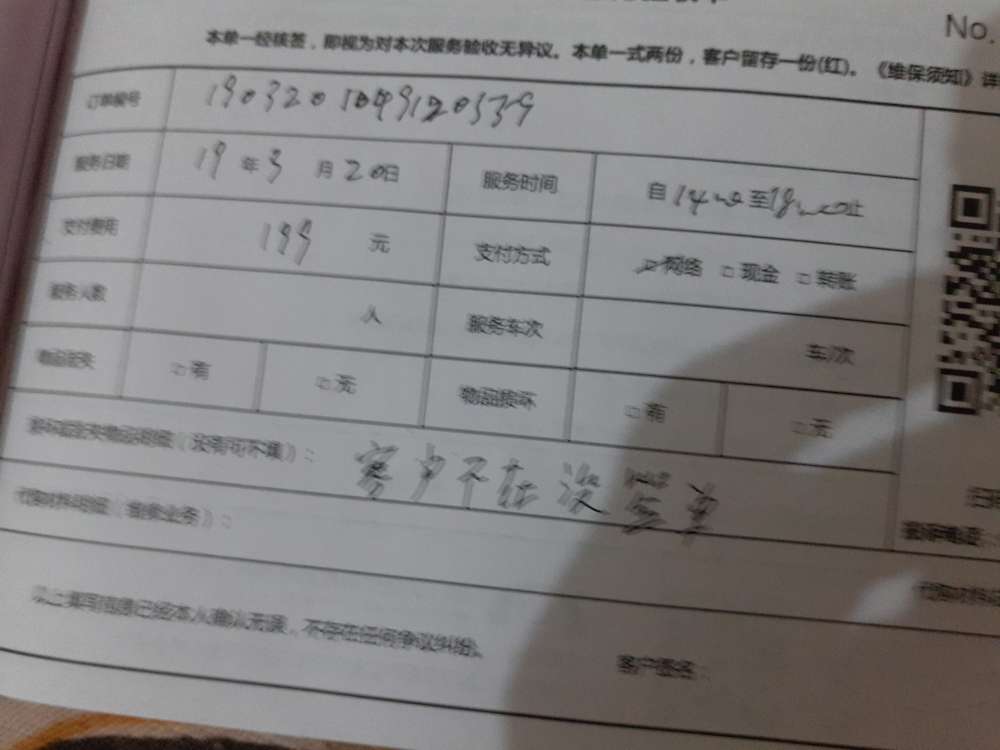 No.
本单一经核签，即视为对本次服务验收无异议。本单一式两份，客户留存一份(红)。《维保须知》详
订单编号 1903201049120539
服务日期 19年3月20日 服务时间 自14:00至18:00止
支付费用 199元 支付方式 ☑网络 □现金 □转账
服务人数 人 服务车次 车/次
物品丢失 □有 □无 物品损坏 □有 □无
损坏或丢失物品明细（没有可不填）： 客户不在没签单
代购材料明细（维修业务）：
以上填写信息已经本人确认无误，不存在任何争议纠纷。
客户签名：